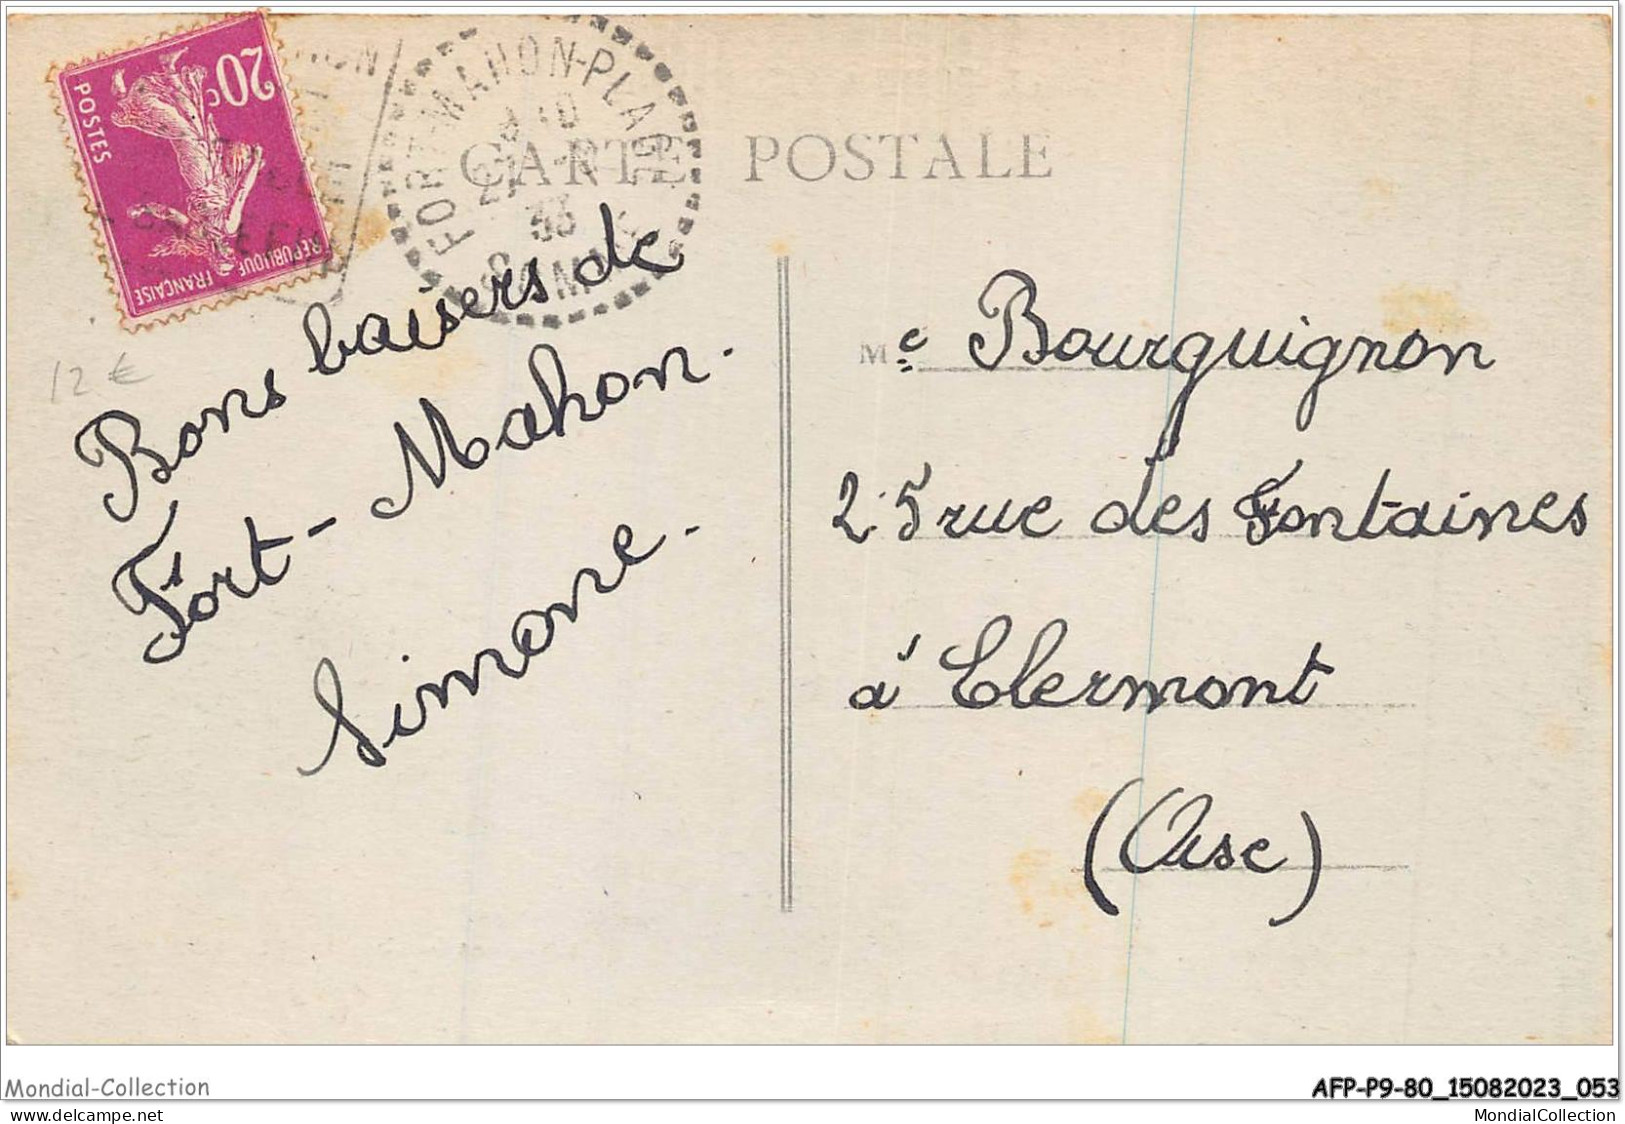 20c
POSTES
REPUBLIQUE FRANÇAISE
FORT-MAHON-PLAGE
33
SOMME
CARTE POSTALE
12 €
Bons baisers de
Fort-Mahon.
Simone.
Me Bourguignon
25 rue des Fontaines
à Clermont
(Oise)
Mondial-Collection
delcampe.net
AFP-P9-80_15082023_053
MondialCollection